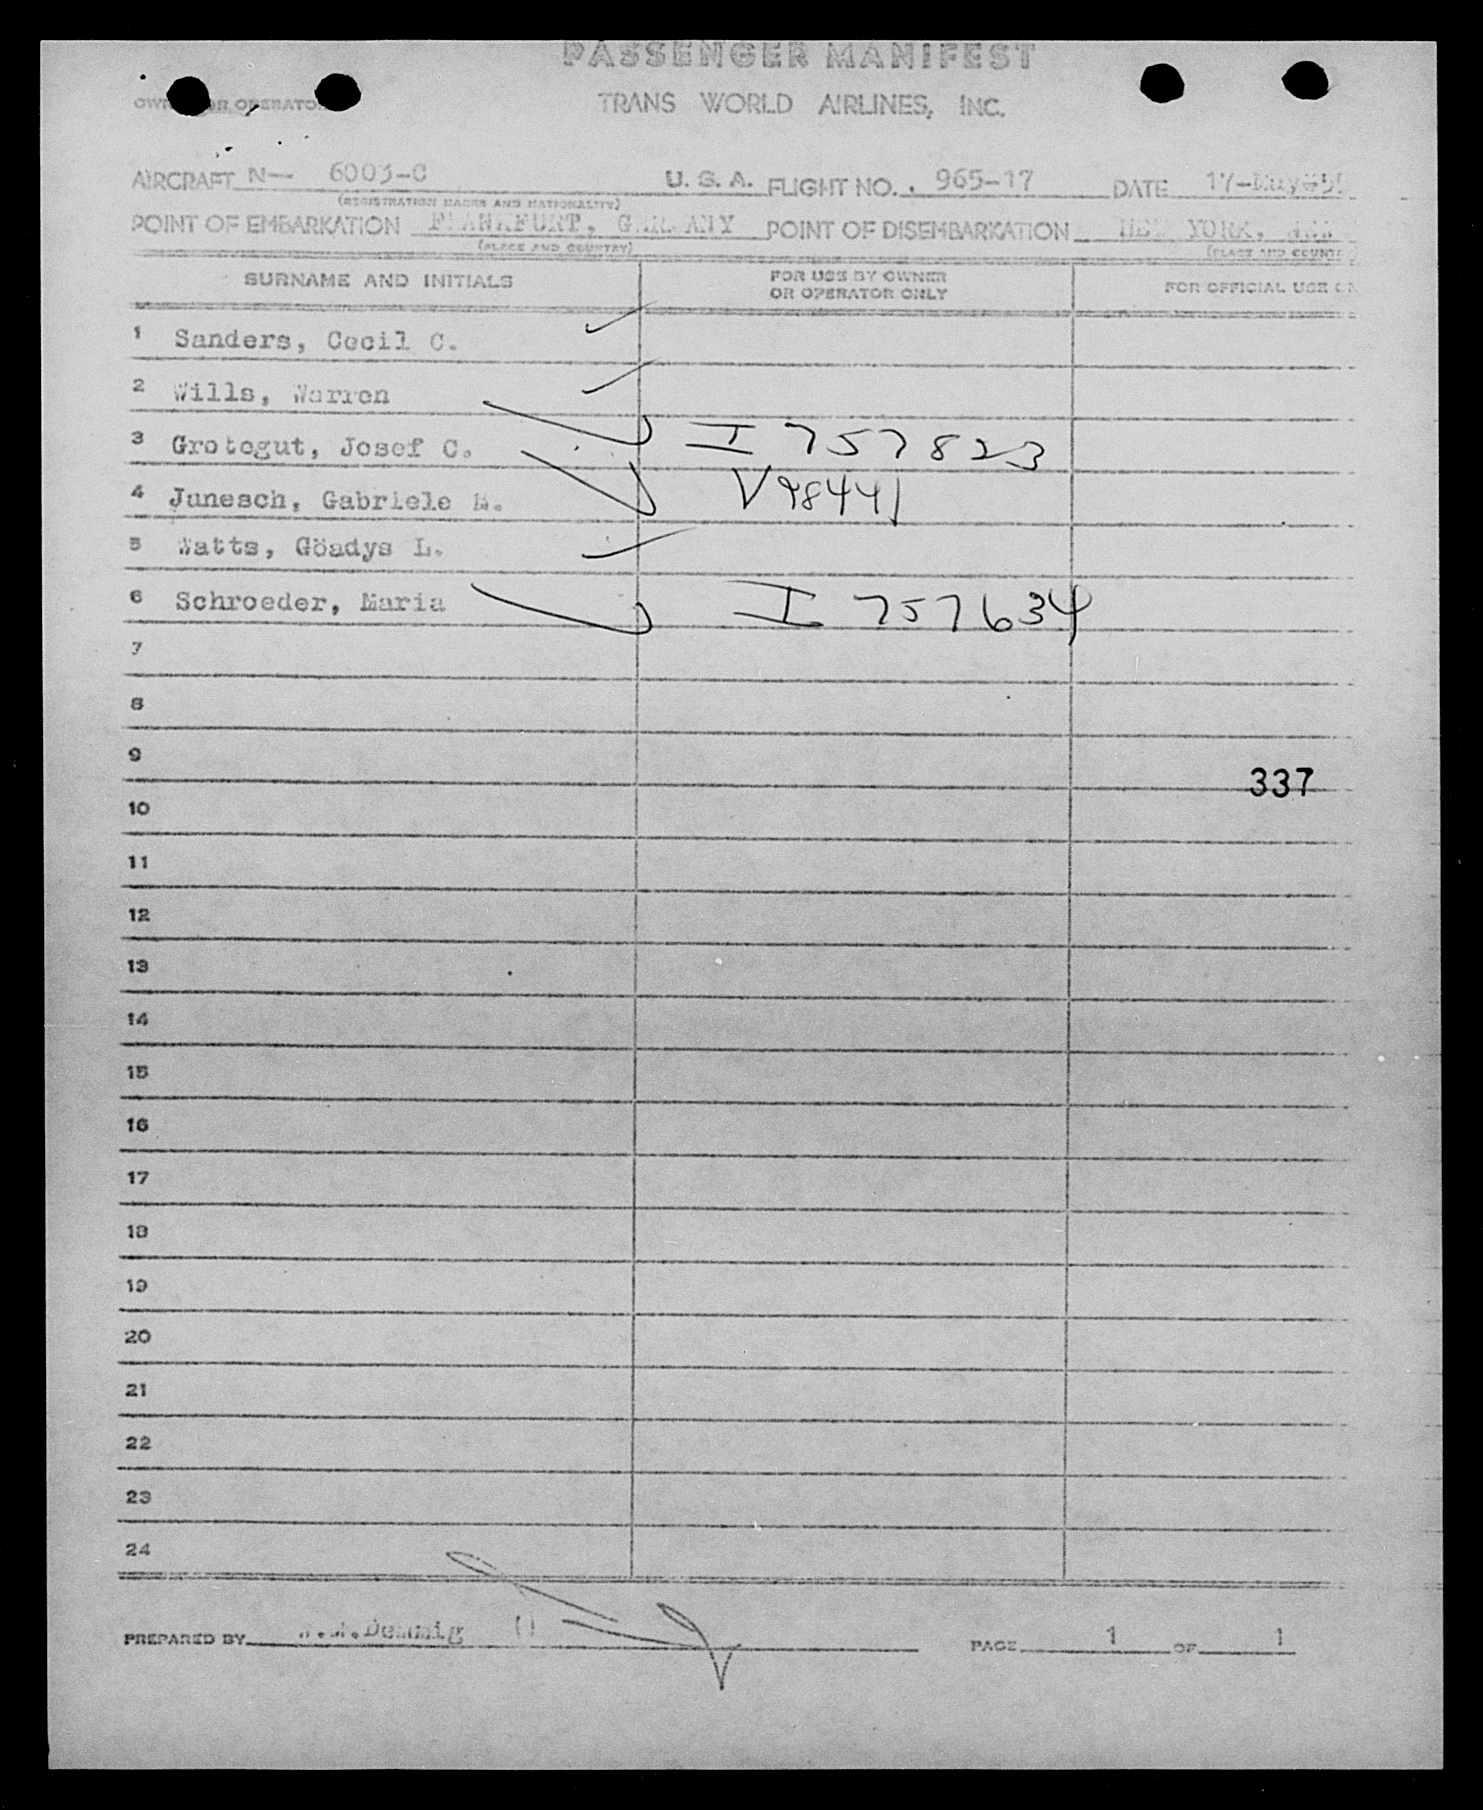 PASSENGER MANIFEST
TRANS WORLD AIRLINES, INC.
AIRCRAFT N-- 6003-C U. S. A. FLIGHT NO. 965-17 DATE 17-May-55
(REGISTRATION MARKS AND NATIONALITY)
POINT OF EMBARKATION FRANKFURT, GERMANY POINT OF DISEMBARKATION NEW YORK,
(PLACE AND COUNTRY) (PLACE AND COUNT
SURNAME AND INITIALS FOR USE BY OWNER OR OPERATOR ONLY FOR OFFICIAL USE
1 Sanders, Cecil C.
2 Wills, Warren
3 Grotegut, Josef C. I 757823
4 Junesch, Gabriele V98441
5 Watts, Göadys L.
6 Schroeder, Maria I 757634
7
8
9
337
10
11
12
13
14
15
16
17
18
19
20
21
22
23
24
PREPARED BY PAGE 1 OF 1